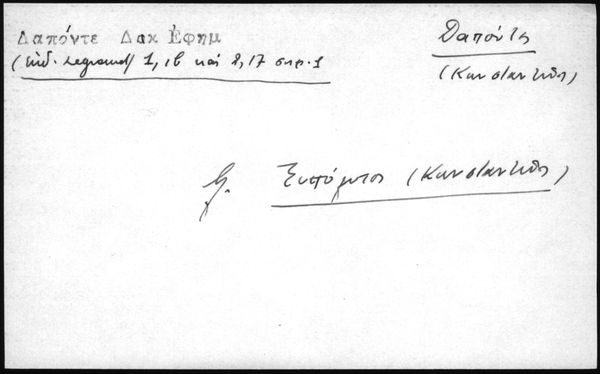 Δαπόντε Δακ Ἐφημ
(ἐκδ. Legrand) 1, ιϛ καί 2, 17 σημ. 1
Δαπόντες
(Κωνσταντῖνος)
Ξυπόλυτος (Κωνσταντῖνος)